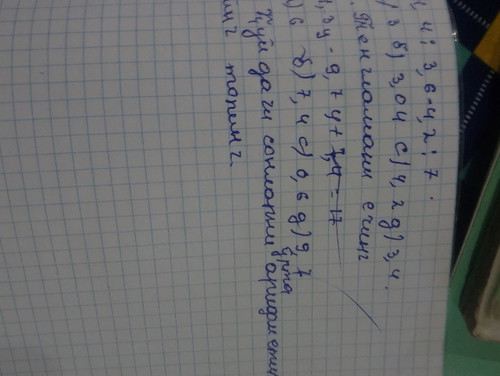 4 : 3,6 - 4,2 : 7 .
3 б) 3,04 с) 4,2 д) 3,4.
Тенгламани ечинг
,3у - 9,7у + 7,4 = 17
6 б) 7,4 с) 0,6 д) 9,7
Қуйдаги сонларни урта арифметиг
топинг